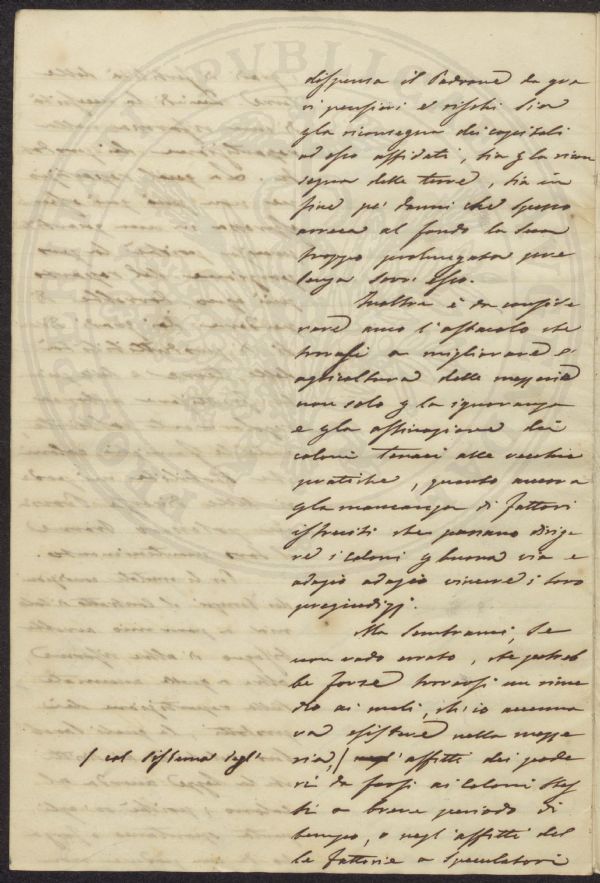 dispensa il Padrone da gra
vi pensieri e rischi sia
p la riconsegna dei capitali
ad esso affidati, sia p la ricon
segna delle terre, sia in
fine pe' danni che spesso
arreca al fondo la sua
troppo prolungata pre
senza sovr'esso.
Inoltre è da conside
rare anco l'ostacolo che
trovasi a migliorare l'
agricoltura delle mezzerie
non solo p la ignoranza
e p la ostinazione dei
coloni tenaci alle vecchie
pratiche, quanto ancora
p la mancanza di fattori
istruiti che possano dirige
re i coloni p buona via e
adagio adagio vincere i loro
pregiudizj.
Ma sembrami, se
non vado errato, che potreb
be forse trovarsi un rime
dio ai mali, ch'io accenna
va esistere nella mezze
ria, / affitti dei pode
/ col sistema degl'
ri da farsi ai coloni stes
si a breve periodo di
tempo, o negl'affitti del
le fattorie a speculatori